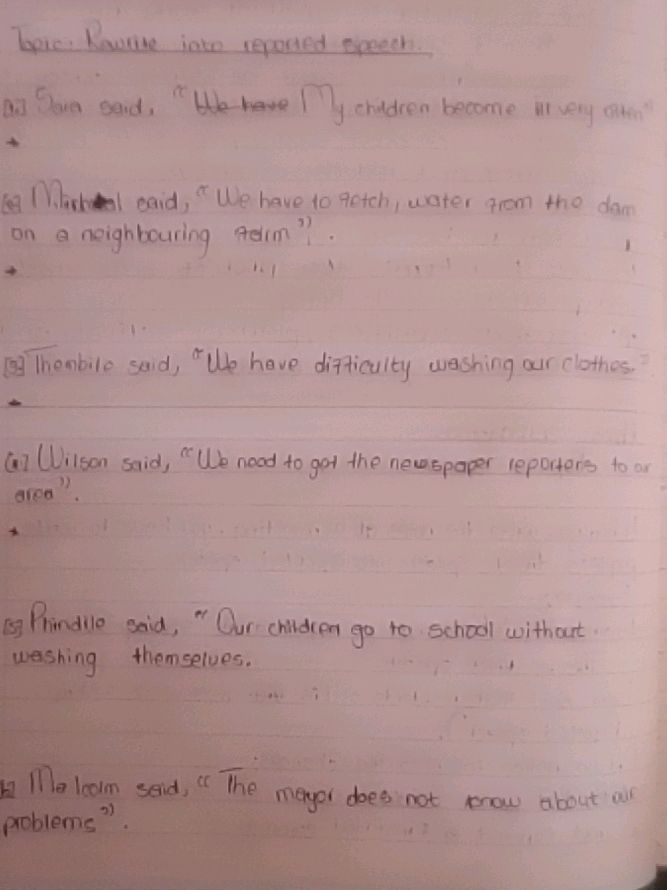 Topic: Rewrite into reported speech.
[1.] Sara said, "We have My children become ill very often"
[2] said, "We have to fetch, water from the dam
on a neighbouring farm".
[3] Thembile said, "We have difficulty washing our clothes."
[4] Wilson said, "We need to get the newspaper reporters to our
area".
[5] Phindile said, "Our children go to school without
washing themselves.
Malcolm said, "The mayor does not know about our
problems".